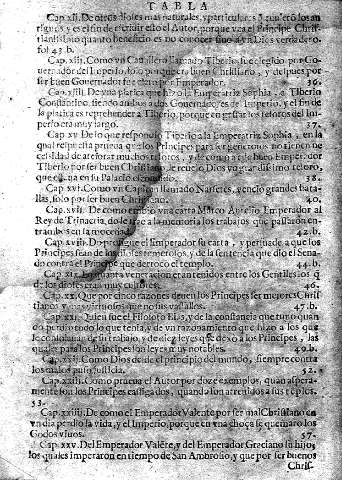 TABLA
Cap. xij. De otros dioses mas naturales, y particulares q̃ tuuierõ los an
tiguos, y es el fin de escriuir esto el Autor, porque vea el Principe Chri-
stianissimo quanto beneficio es no conocer sino a vn Dios verdadero.
fol 43 b.
Cap. xiij. Como vn Cauallero llamado Tiberio fue elegido por Go
uernador del Imperio, solo porque era buen Christiano, y despues por
ser buen Gouernador fue electo por Emperador. 36.
Cap. xiiij. De vna platica que hizo la Emperatriz Sophia, a Tiberio
Constantino, siendo ambos a dos Gouernadores del Imperio, y el fin de
la platica es reprehender a Tiberio, porque en gastar los tesoros del Im-
perio era muy largo. 37.
Cap. xv De lo que respondio Tiberio a la Emperatriz Sophia, en la
qual respuesta prueua que los Principes para ser generosos no tienen ne
cessidad de atesorar muchos tesoros, y de como este buen Emperador
Tiberio por ser buen Christiano le reuelo Dios vn grandissimo tesoro,
que estaua en su Palacio escondido. 38.
Cap. xvj. Como vn Capitan llamado Narsetes, vencio grandes bata
llas, solo por ser Christiano. 40.
Cap. xvij. De como embio vna carta Marco Aurelio Emperador al
Rey de Trinacria, do le trae a la memoria los trabajos que passaron en-
trambos en la mocedad. 42.b.
Cap. xviij. Do prosigue el Emperador su carta, y persuade a que los
Principes sean de los dioses temerosos, y de la sentencia que dio el Sena
do contra el Principe que derroco el templo. 44.b.
Cap. xix. En quanta veneracion eran tenidos entre los Gentiles los q̃
de los dioses eran muy cultores. 46.
Cap. xx. Que por cinco razones deuen los Principes ser mejores Chri
stianos y mas virtuosos que no sus vassallos. 47.b.
Cap. xxj. Quien fue el Filosofo Bias, y de la constancia que tuuo quan
do perdio todo lo que tenia, y de vn razonamiento que hizo a los que
le consolauan de su trabajo, y de diez leyes que dexo a los Principes, las
quales para los Principes son leyes muy notables. 49.b.
Cap. xxij. Como Dios desde el principio del mundo, siempre contra
los malos puso justicia. 52.
Cap. xxiij. Como prueua el Autor por doze exemplos, quan aspera-
mente son los Principes castigados, quando son atreuidos a sus templos.
53.
Cap. xxiiij. De como el Emperador Valente por ser mal Christiano en
vn dia perdio la vida, y el Imperio, porque en vna choça se quemaron los
Godos viuos. 57.
Cap. xxv. Del Emperador Valẽte, y del Emperador Graciano su hijo,
los quales imperaron en tiempo de San Ambrosio, y que por ser buenos
Chris-